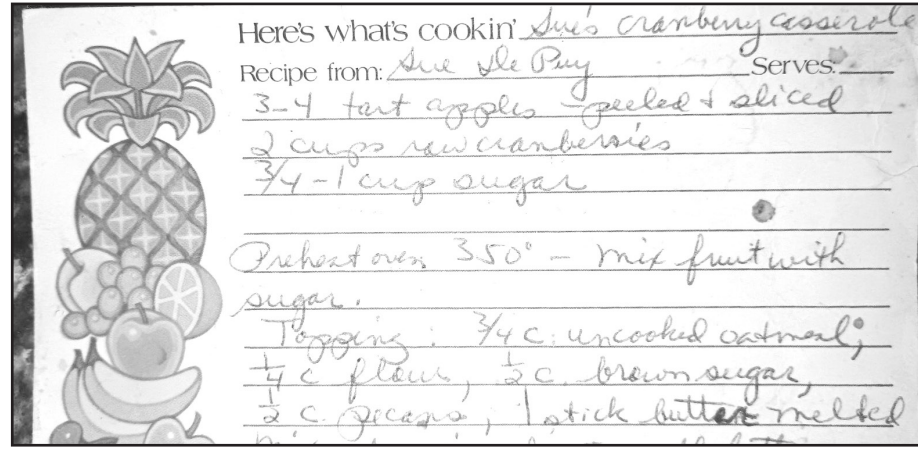 Here's what's cookin' Sue's cranberry casserole
Recipe from: Sue De Puy Serves:
3-4 tart apples - peeled & sliced
2 cups raw cranberries
3/4 - 1 cup sugar
Preheat oven 350° - mix fruit with
sugar.
Topping: 3/4 c. uncooked oatmeal,
1/4 c flour, 1/2 c. brown sugar,
1/2 c. pecans, 1 stick butter melted